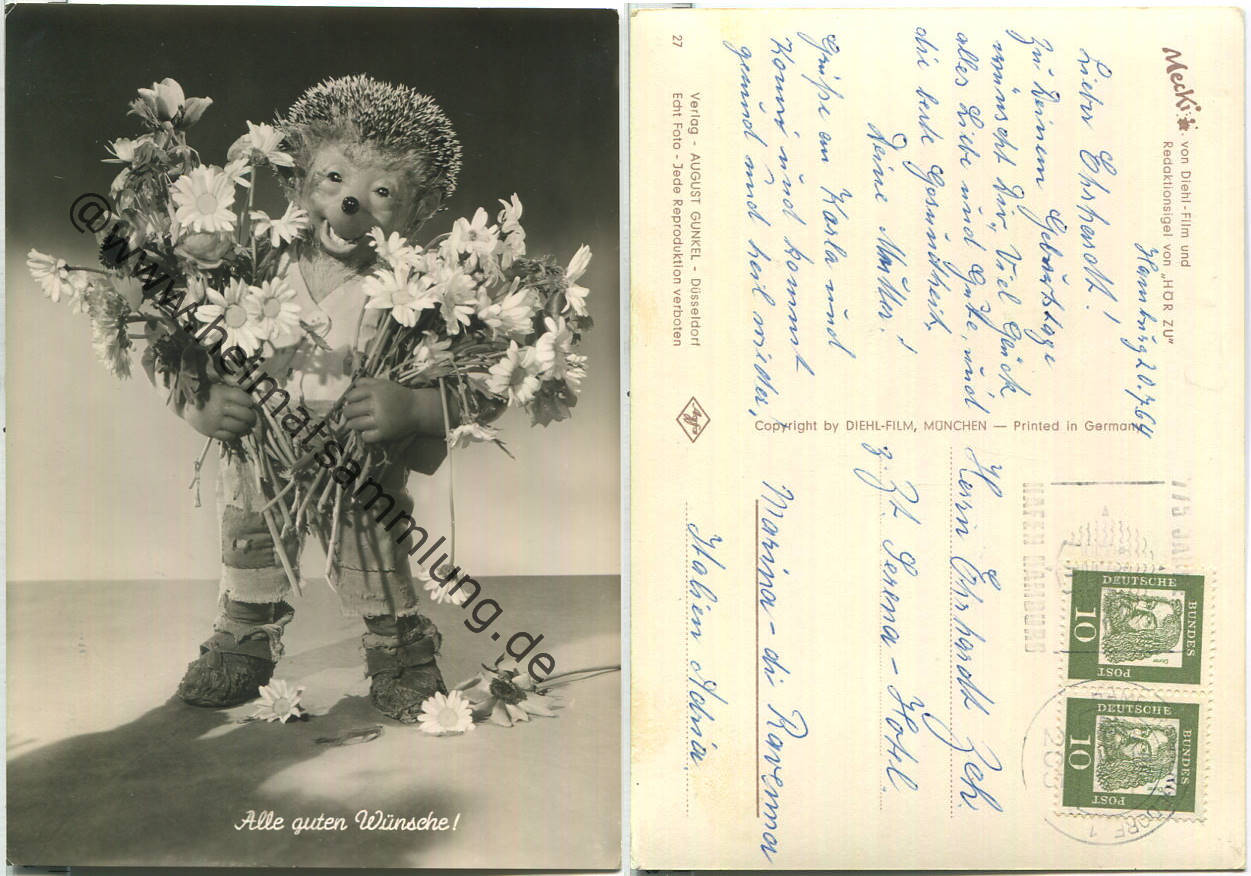 @www.heimatsammlung.de
Alle guten Wünsche!
Mecki
von Diehl-Film und
Redaktionsigel von „HÖR ZU"
Hamburg 20.7.64
Lieber Ehrhardt!
Zu Deinem Geburtstage
wünscht Dir, Viel Glück
alles Liebe und Gute, und
die beste Gesundheit.
Deine Mutter.!
Grüße an Karla und
Konni und kommt
gesund und heil wieder,
Verlag - AUGUST GUNKEL - Düsseldorf
Echt Foto - Jede Reproduktion verboten
27
Agfa
Copyright by DIEHL-FILM, MÜNCHEN — Printed in Germany
775 JA
HAFEN HAMBURG
DEUTSCHE
BUNDES
POST
10
Dürer
DEUTSCHE
BUNDES
POST
10
Herrn Ehrhardt Zeh.
z. Zt Serena - Hotel.
Marina - di Ravenna
Italien Adria.